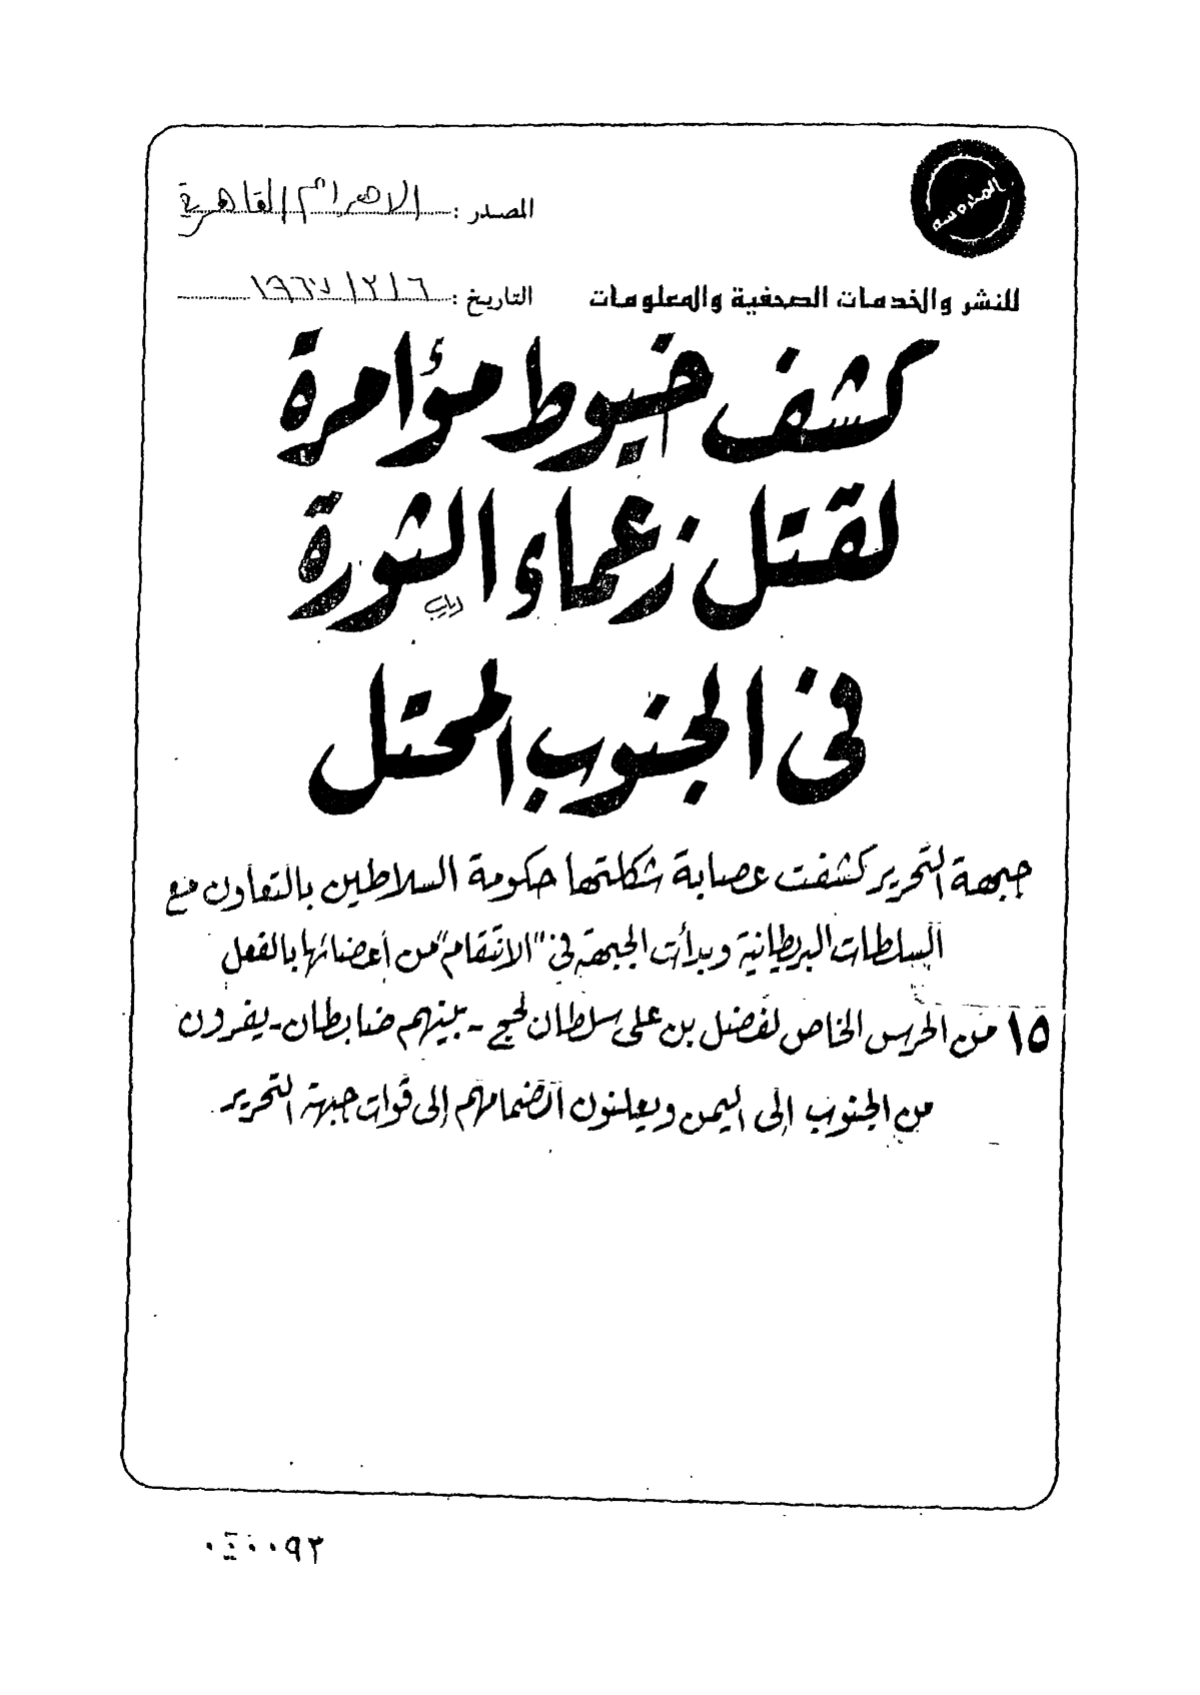 المصدر : الاهرام القاهرية
المحروسه
للنشر والخدمات الصحفية والمعلومات
التاريخ : ١٩٦٧/٢/٦
كشف خيوط مؤامرة
لقتل زعماء الثورة
فى الجنوب المحتل
جبهة التحرير كشفت عصابة شكلتها حكومة السلاطين بالتعاون مع
السلطات البريطانية وبدأت الجبهة فى "الانتقام" من أعضائها بالفعل
١٥ من الحرس الخاص لفضل بن على سلطان لحج - بينهم ضابطان - يفرون
من الجنوب إلى اليمن ويعلنون انضمامهم إلى قوات جبهة التحرير